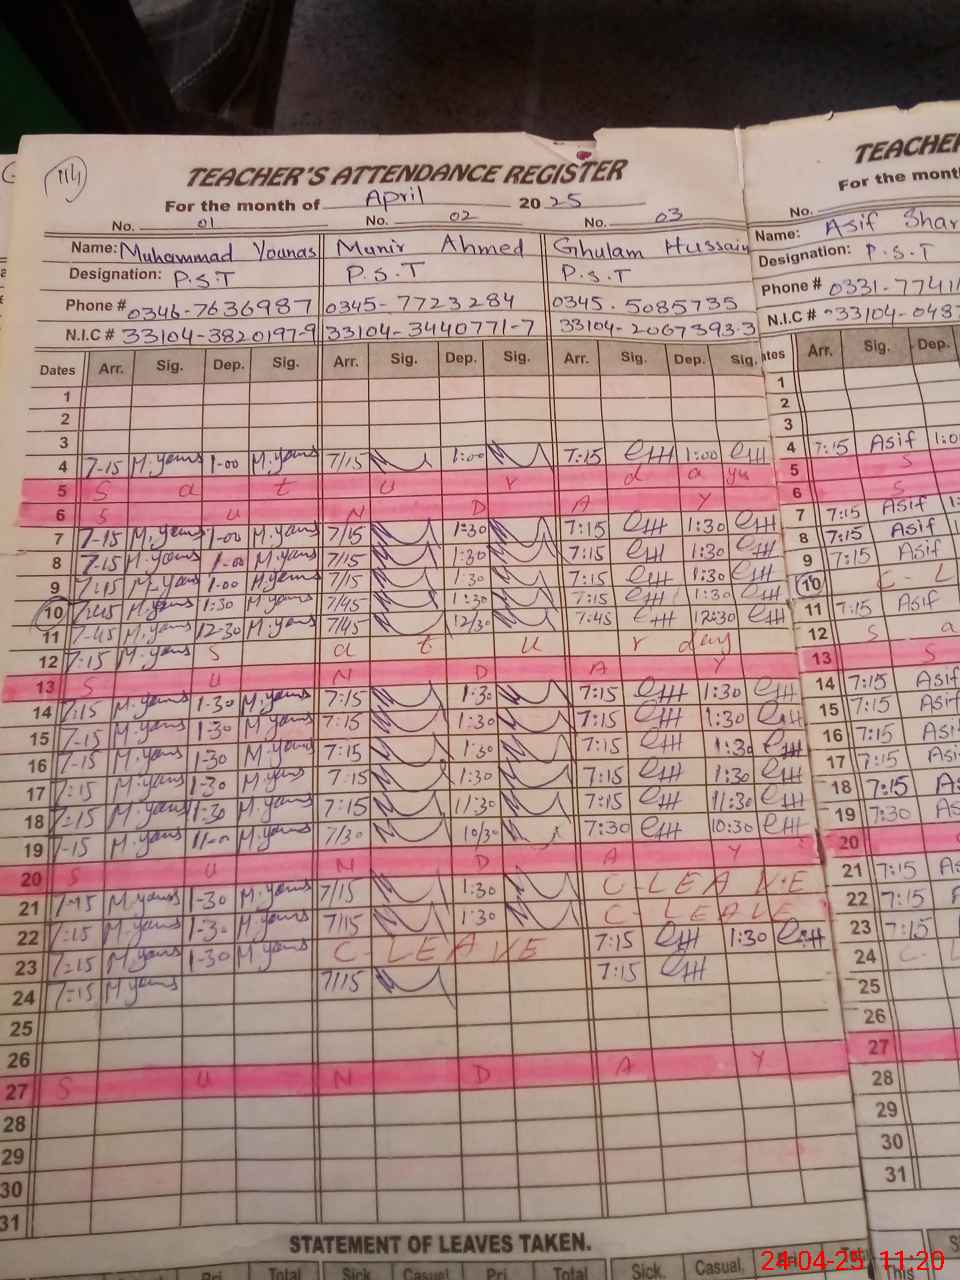 TEACHER'S ATTENDANCE REGISTER
For the month of April 2025
No. 01 No. 02 No. 03
Name: Muhammad Younas Munir Ahmed Ghulam Hussain
Designation: P.S.T P.S.T P.S.T
Phone # 0346-7636987 0345-7723284 0345.5085735
N.I.C # 33104-3820197-9 33104-3440771-7 33104-2067393-3
Dates Arr. Sig. Dep. Sig. Arr. Sig. Dep. Sig. Arr. Sig. Dep. Sig.
1
2
3
4 7-15 M.youns 1-00 M.youns 7/15 1:00 7:15 1:00
5 S a t u r d a y
6 S U N D A Y
7 7-15 M.youns 1-00 M.youns 7/15 1:30 7:15 1:30
8 7-15 M.youns 1-00 M.youns 7/15 1:30 7:15 1:30
9 7:15 M.youns 1-00 M.youns 7/15 1:30 7:15 1:30
10 M.youns 1:30 M.youns 7/45 1:30 7:15 1:30
11 7-45 M.youns 12-30 M.youns 7/45 12/30 7:45 12:30
12 7:15 M.youns S a t u r day
13 S U N D A Y
14 7:15 M.youns 1-30 M.youns 7:15 1:30 7:15 1:30
15 7-15 M.youns 1-30 M.youns 7:15 1:30 7:15 1:30
16 7-15 M.youns 1-30 M.youns 7:15 1:30 7:15 1:30
17 7:15 M.youns 1-30 M.youns 7:15 1:30 7:15 1:30
18 7:15 M.youns 11:30 M.youns 7:15 11:30 7:15 11:30
19 7-15 M.youns M.youns 7/30 10/30 7:30 10:30
20 S U N D A Y
21 7-15 M.youns 1-30 M.youns 7/15 1:30 C-LEAVE
22 7:15 M.youns 1-30 M.youns 7/15 1:30 C-LEAVE
23 7:15 M.youns 1-30 M.youns C-LEAVE 7:15 1:30
24 7:15 M.youns 7/15 7:15
25
26
27 S U N D A Y
28
29
30
31
STATEMENT OF LEAVES TAKEN.
Total Sick Casual Pri. Total Sick. Casual.
TEACHE
For the mont
No.
Name: Asif Shar
Designation: P.S.T
Phone # 0331-7741
N.I.C # 33104-048
ates Arr. Sig. Dep.
1
2
3
4 7:15 Asif 1:0
5 S
6 S
7 7:15 Asif
8 7:15 Asif
9 7:15 Asif
10 C-L
11 7:15 Asif
12 S a
13 S
14 7:15 Asif
15 7:15 Asif
16 7:15 Asif
17 7:15 Asi
18 7:15 As
19 7:30 As
20
21 7:15 As
22 7:15 A
23 7:15
24 C-L
25
26
27
28
29
30
31
24-04-25 11:20